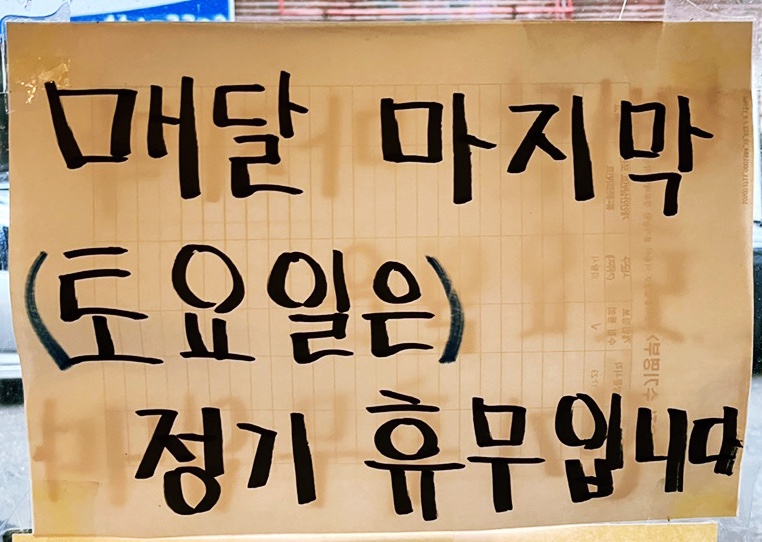 매달 마지막
(토요일은)
정기 휴무입니다